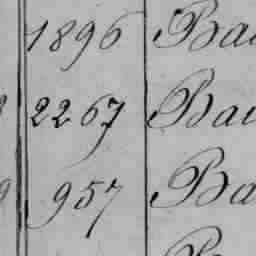 1896 Ba
2267 Bau
957 Ba